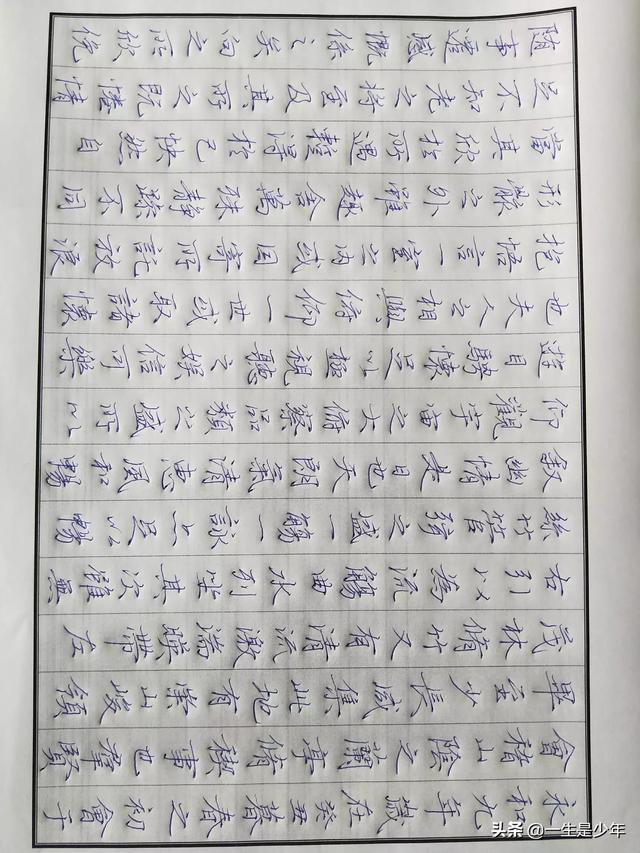 永和九年歲在癸丑暮春之初會于
會稽山陰之蘭亭脩禊事也羣賢
畢至少長咸集此地有崇山峻領
茂林脩竹又有清流激湍暎帶左
右引以為流觴曲水列坐其次雖無
絲竹管弦之盛一觴一詠亦足以暢
敘幽情是日也天朗氣清惠風和暢
仰觀宇宙之大俯察品類之盛所以
遊目騁懷足以極視聽之娛信可樂
也夫人之相與俯仰一世或取諸懷
抱悟言一室之內或因寄所託放浪
形骸之外雖趣舍萬殊靜躁不同
當其欣於所遇蹔得於己快然自
足不知老之將至及其所之既惓情
隨事遷感慨係之矣向之所欣俛
头条 @一生是少年